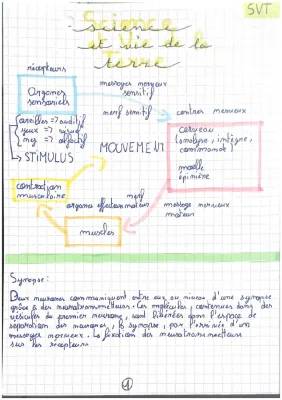 SVT
Science
et vie de la
terre
récepteurs
Organes
sensoriels
messages nerveux
sensitif
nerf sensitif
centres nerveux
oreilles => auditif
yeux => visuel
nez => olfactif
→ STIMULUS
MOUVEMENT
cerveau
(analyse, intègre,
communique)
moelle
épinière
contraction
musculaire
nerf
moteur
organes effecteurs
message nerveux
moteur
muscles
Synapse:
Deux neurones communiquent entre eux au niveau d'une synapse
grâce à des neurotransmetteurs. Ces molécules, contenues dans des
vésicules du premier neurone, sont libérées dans l'espace de
séparation des neurones, la synapse, par l'arrivée d'un
message nerveux. La fixation des neurotransmetteurs
sur les récepteurs
1